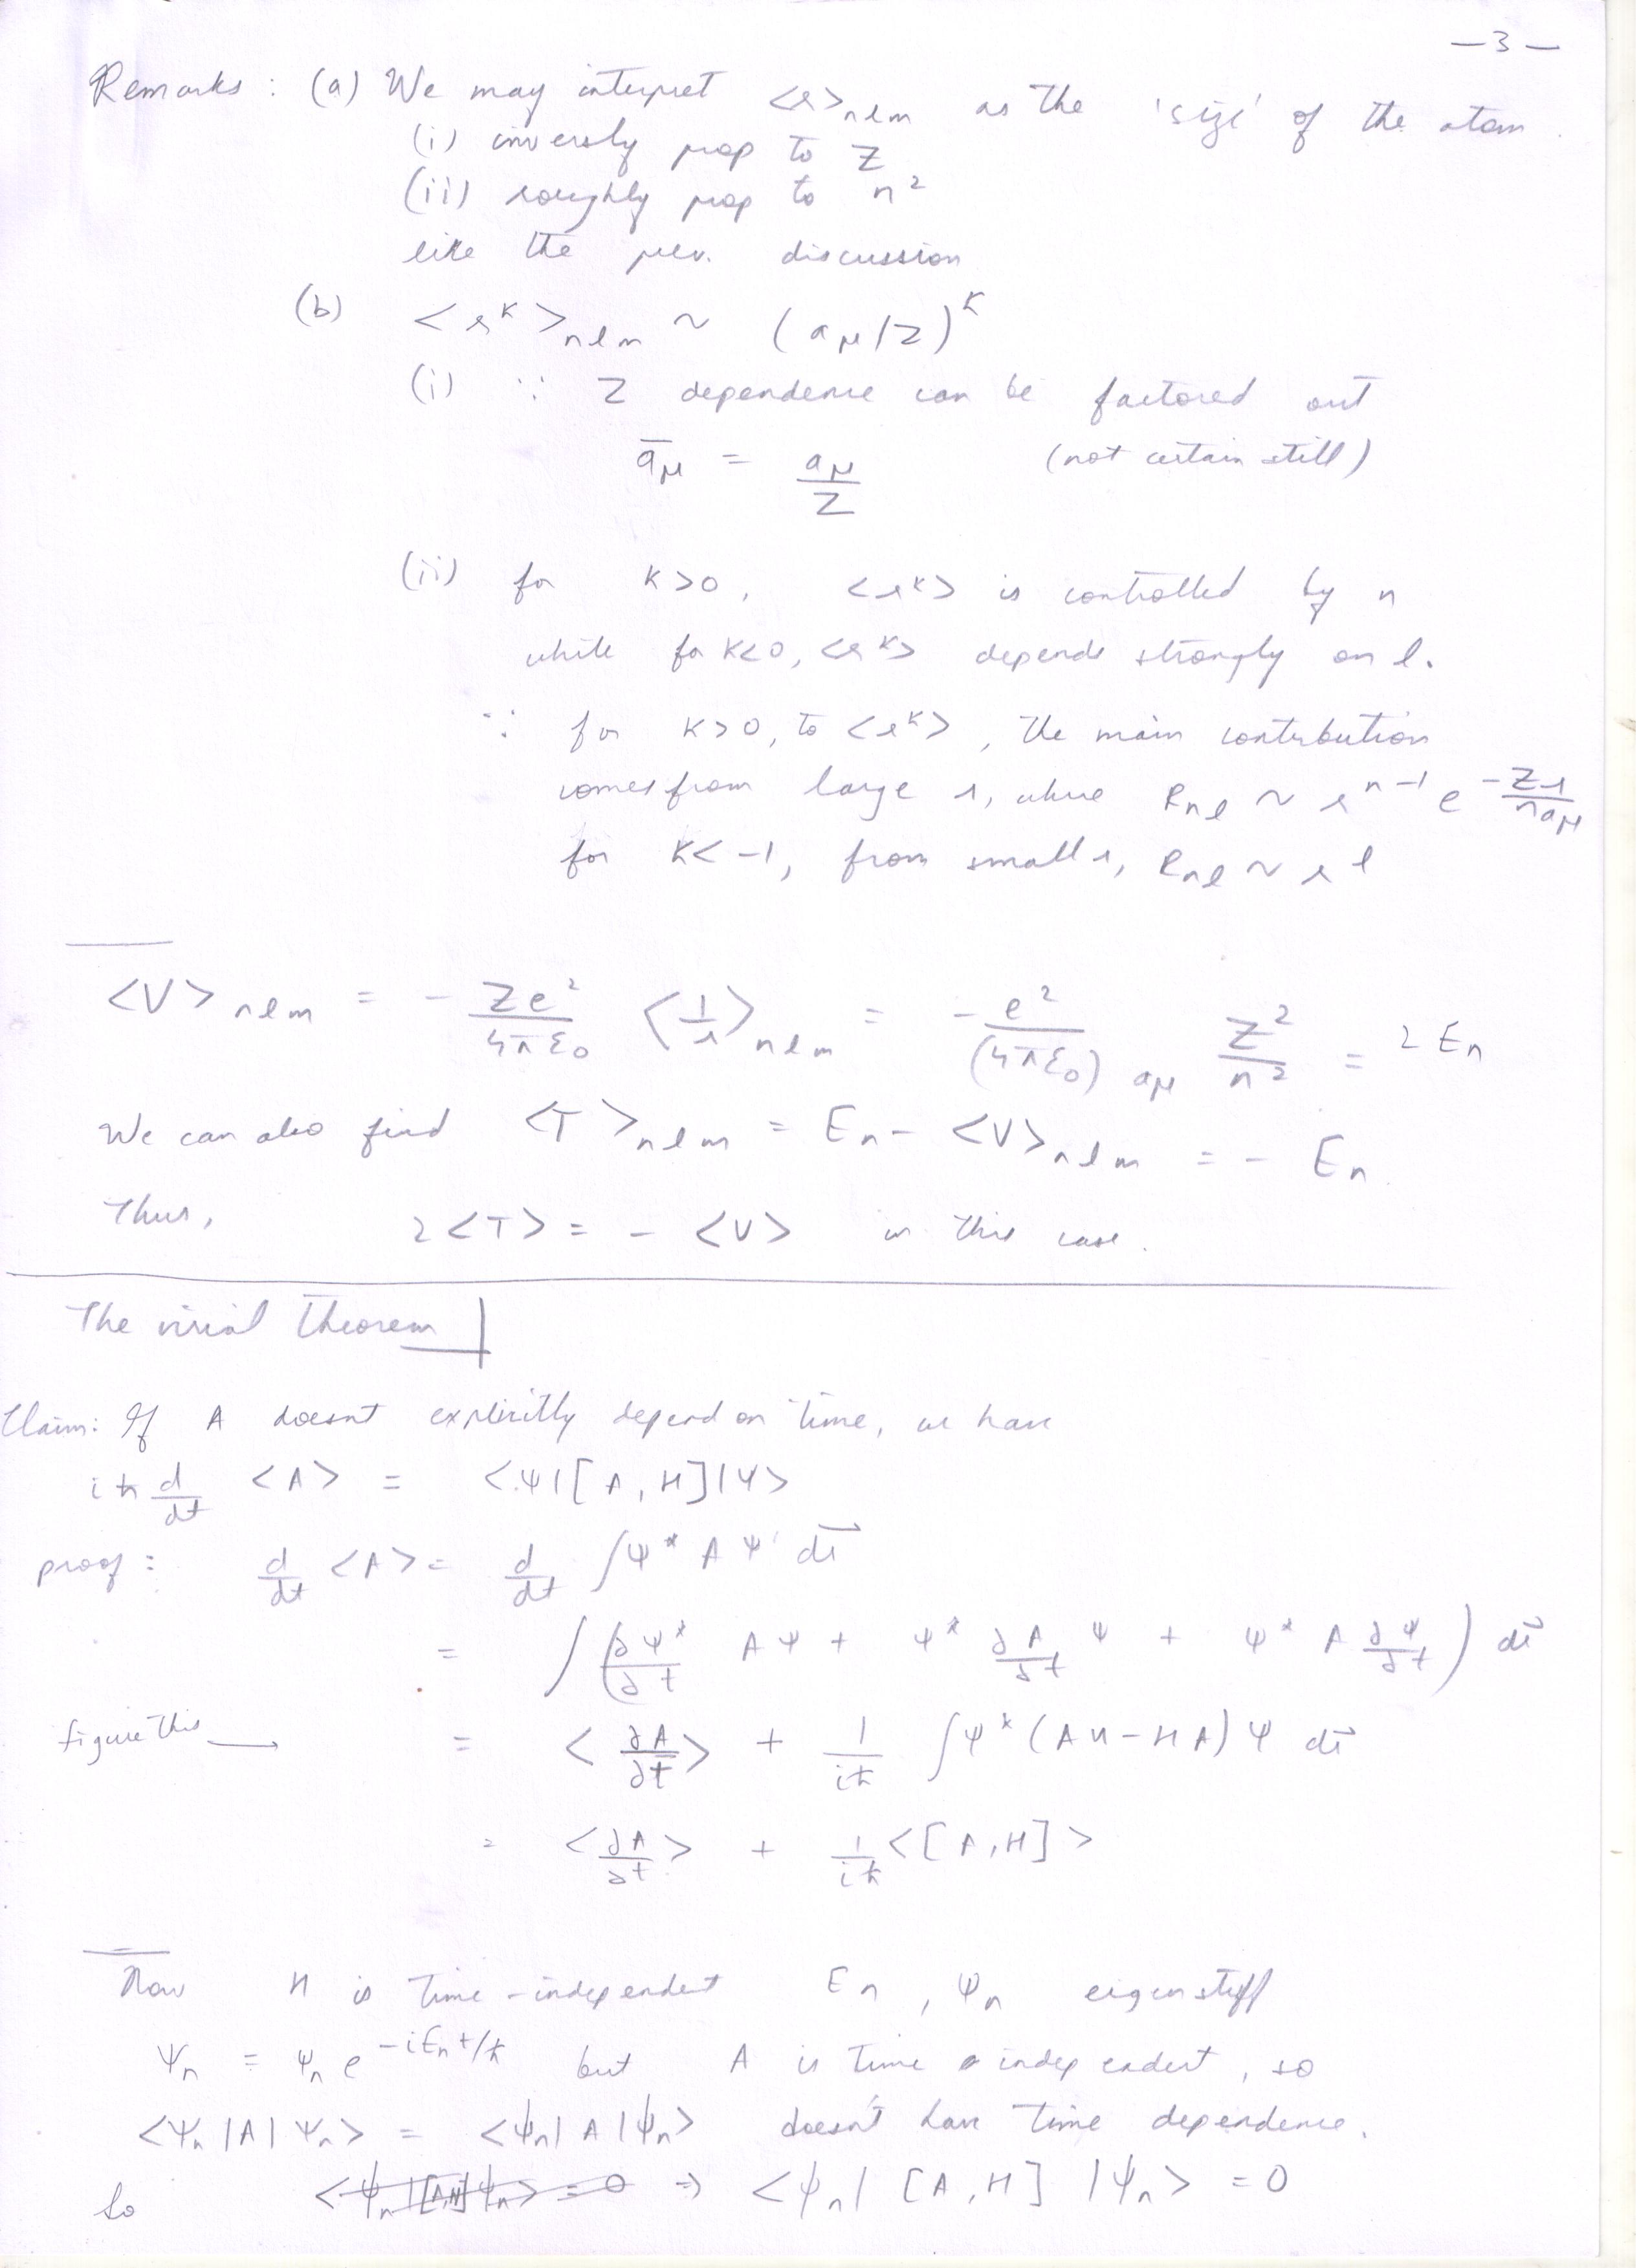 —3—
Remarks : (a) We may interpret <r>nlm as the 'size' of the atom.
(i) inversly prop to Z
(ii) roughly prop to n²
like the prev. discussion
(b) <r^k>nlm ~ (aμ/Z)^k
(i) ∵ Z dependence can be factored out
āμ = aμ/Z (not certain still)
(ii) for k>0, <r^k> is controlled by n
while for k<0, <r^k> depends strongly on l.
∵ for k>0, to <r^k>, the main contribution
comes from large r, where Rnl ~ r^(n-1) e^(-Zr/naμ)
for k<-1, from small r, Rnl ~ r^l
<V>nlm = - Ze²/4πε₀ <1/r>nlm = - e²/(4πε₀)aμ Z²/n² = 2En
We can also find <T>nlm = En - <V>nlm = - En.
Thus, 2<T> = - <V> in this case.
The virial theorem
Claim: If A doesnt explicitly depend on time, we have
iħ d/dt <A> = <Ψ|[A,H]|Ψ>
proof : d/dt <A> = d/dt ∫Ψ* A Ψ dr⃗
= ∫(∂Ψ*/∂t AΨ + Ψ* ∂A/∂t Ψ + Ψ* A ∂Ψ/∂t) dr⃗
figure this → = <∂A/∂t> + 1/iħ ∫Ψ*(AH-HA)Ψ dr⃗
= <∂A/∂t> + 1/iħ <[A,H]>
Now H is time-independent En, ψn eigenstuff
Ψn = ψn e^(-iEnt/ħ) but A is time independent, so
<Ψn|A|Ψn> = <ψn|A|ψn> doesn't have time dependence.
So <ψn|[A,H]|ψn> = 0 ⇒ <ψn| [A,H] |ψn> = 0